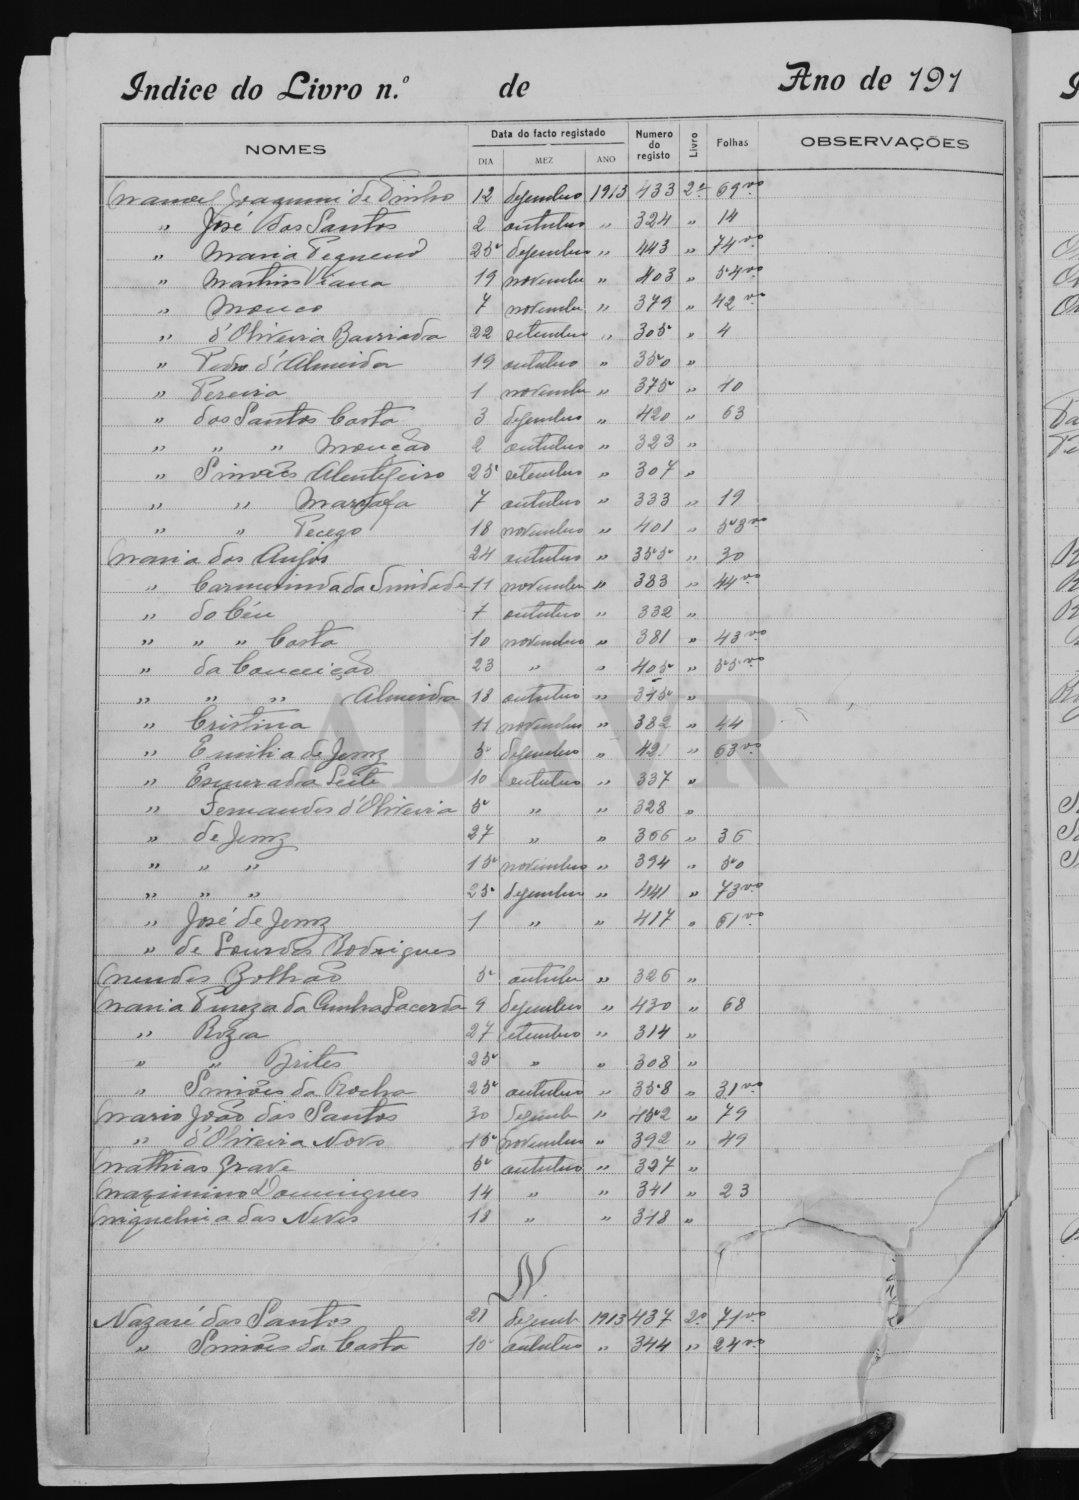 Indice do Livro n.º de Ano de 191
NOMES Data do facto registado Numero do registo Livro Folhas OBSERVAÇÕES
DIA MEZ ANO
Manoel Joaquim de Pinho 12 dezembro 1913 433 2º 69 vº
" José dos Santos 2 outubro " 324 " 14
" Maria Pequeno 25 dezembro " 443 " 74 vº
" Martins Viana 19 novembro " 403 " 54 vº
" Mouco 7 novembro " 379 " 42 vº
" d'Oliveira Barriada 22 setembro " 305 " 4
" Pedro d'Almeida 19 outubro " 350 "
" Pereira 1 novembro " 375 " 10
" dos Santos Costa 3 dezembro " 420 " 63
" " " Monção 2 outubro " 323 "
" Simões Alentejeiro 25 setembro " 307 "
" " Marrafa 7 outubro " 333 " 19
" " Pecego 18 novembro " 401 " 53 vº
Maria dos Anjos 24 outubro " 355 " 30
" Carmerinda da Trindade 11 novembro " 383 " 44 vº
" do Céu 7 outubro " 332 "
" " " Costa 10 novembro " 381 " 43 vº
" da Conceição 23 " " 405 " 55 vº
" " " Almeida 18 outubro " 345 "
" Cristina 11 novembro " 382 " 44
" Emilia de Jesus 5 dezembro " 421 " 63 vº
" Esmerada Leite 10 outubro " 337 "
" Fernandes d'Oliveira 5 " " 328 "
" de Jesus 27 " " 366 " 36
" " " 15 novembro " 394 " 50
" " " 25 dezembro " 441 " 73 vº
" José de Jesus 1 " " 417 " 61 vº
" de Lourdes Rodrigues
Mendes Bolhão 5 outubro " 326 "
Maria Pureza da Cunha Lacerda 9 dezembro " 430 " 68
" Roza 27 setembro " 314 "
" " Brites 25 " " 308 "
" Simões da Rocha 25 outubro " 358 " 31 vº
Mario João dos Santos 30 dezembro " 452 " 79
" d'Oliveira Novo 15 novembro " 392 " 49
Mathias Grave 5 outubro " 327 "
Maximino Domingues 14 " " 341 " 23
Miquelina das Neves 18 " " 348 "
N.
Nazaré dos Santos 21 dezemb 1913 437 2º 71 vº
" Simões da Costa 10 outubro " 344 " 24 vº
ADAVR